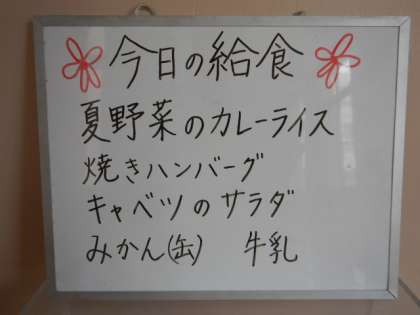 今日の給食
夏野菜のカレーライス
焼きハンバーグ
キャベツのサラダ
みかん(缶) 牛乳